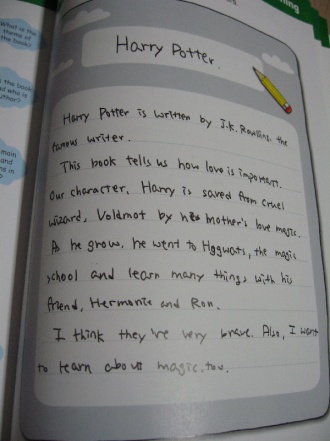 What is the
theme of
the book?
Harry Potter.
Harry Potter is written by J.K. Rowling, the
famous writer.
This book tells us how love is important.
Our character, Harry is saved from cruel
wizard, Voldmot by his mother's love magic.
As he grow, he went to Hggwats, the magic
school and learn many things with his
friend, Hermonie and Ron.
I think they're very brave. Also, I want
to learn about magic, too.